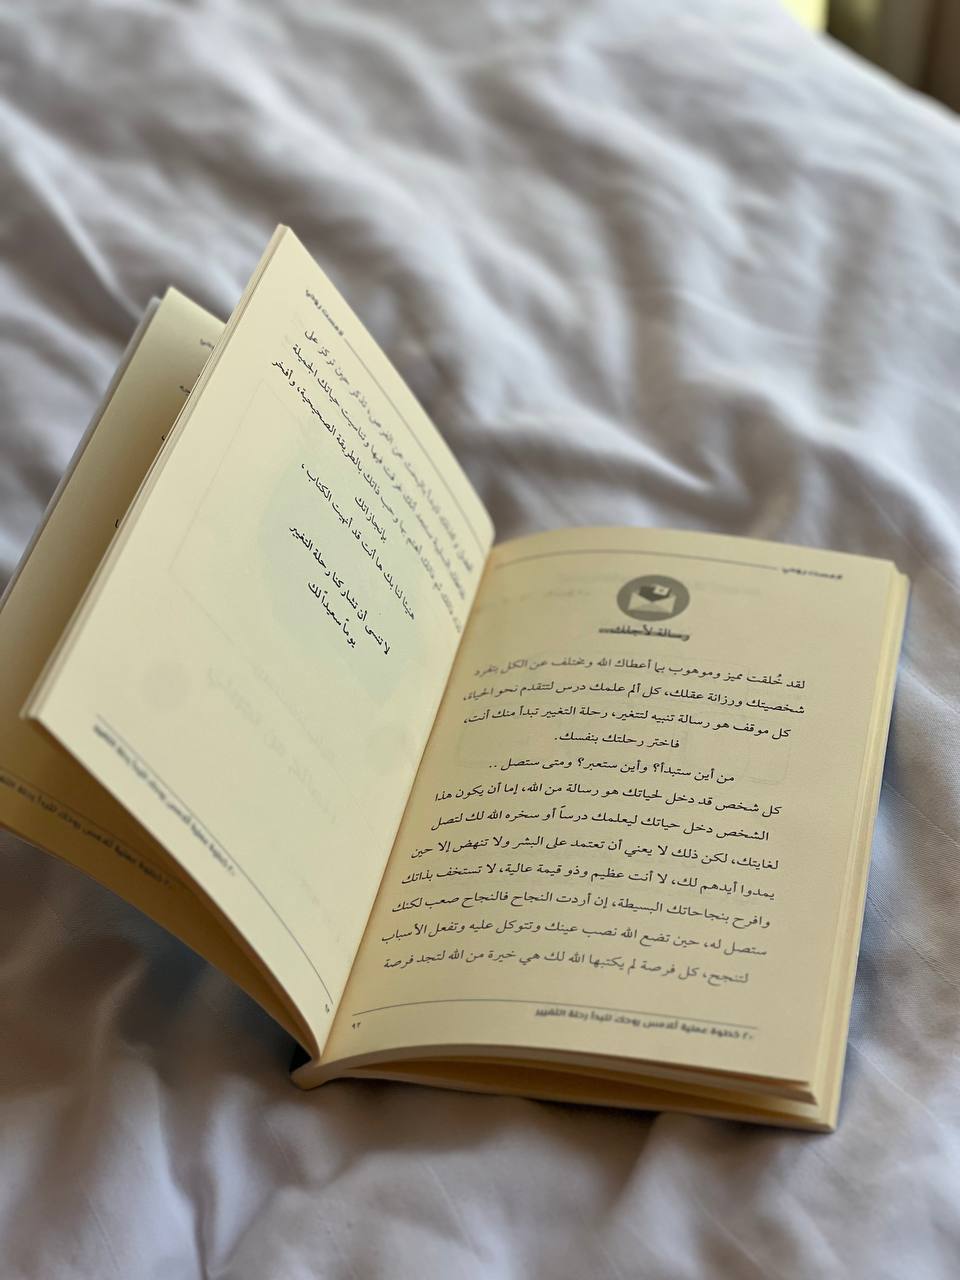 لامست روحي
رسالة لأجلك...
لقد خُلقت مميز وموهوب بما أعطاك الله ومختلف عن الكل بتفرد
شخصيتك ورزانة عقلك، كل ألم علمك درس لتتقدم نحو الحياة،
كل موقف هو رسالة تنبيه لتتغير، رحلة التغيير تبدأ منك أنت،
فاختر رحلتك بنفسك.
من أين ستبدأ؟ وأين ستعبر؟ ومتى ستصل ..
كل شخص قد دخل لحياتك هو رسالة من الله، إما أن يكون هذا
الشخص دخل حياتك ليعلمك درساً أو سخره الله لك لتصل
لغايتك، لكن ذلك لا يعني أن تعتمد على البشر ولا تنهض إلا حين
يمدوا أيدهم لك، لا أنت عظيم وذو قيمة عالية، لا تستخف بذاتك
وافرح بنجاحاتك البسيطة، إن أردت النجاح فالنجاح صعب لكنك
ستصل له، حين تضع الله نصب عينك وتتوكل عليه وتفعل الأسباب
لتنجح، كل فرصة لم يكتبها الله لك هي خيرة من الله لتجد فرصة
٢٠ خطوة عملية تلامس روحك لتبدأ رحلة التغيير
٩٣
لامست روحي
تذكر حين تركز على
فيها وتناسيت حياتك الجميلة
أهتم بها وحب ذاتك بالطريقة الصحيحية، وأفخر
بإنجازاتك
هنيئا لنا بك ها أنت قد أنهيت الكتاب ،
لا تنسى أن تشاركنا رحلة التغيير
يوماً سعيداً لك
٢٠ خطوة عملية تلامس روحك لتبدأ رحلة التغيير